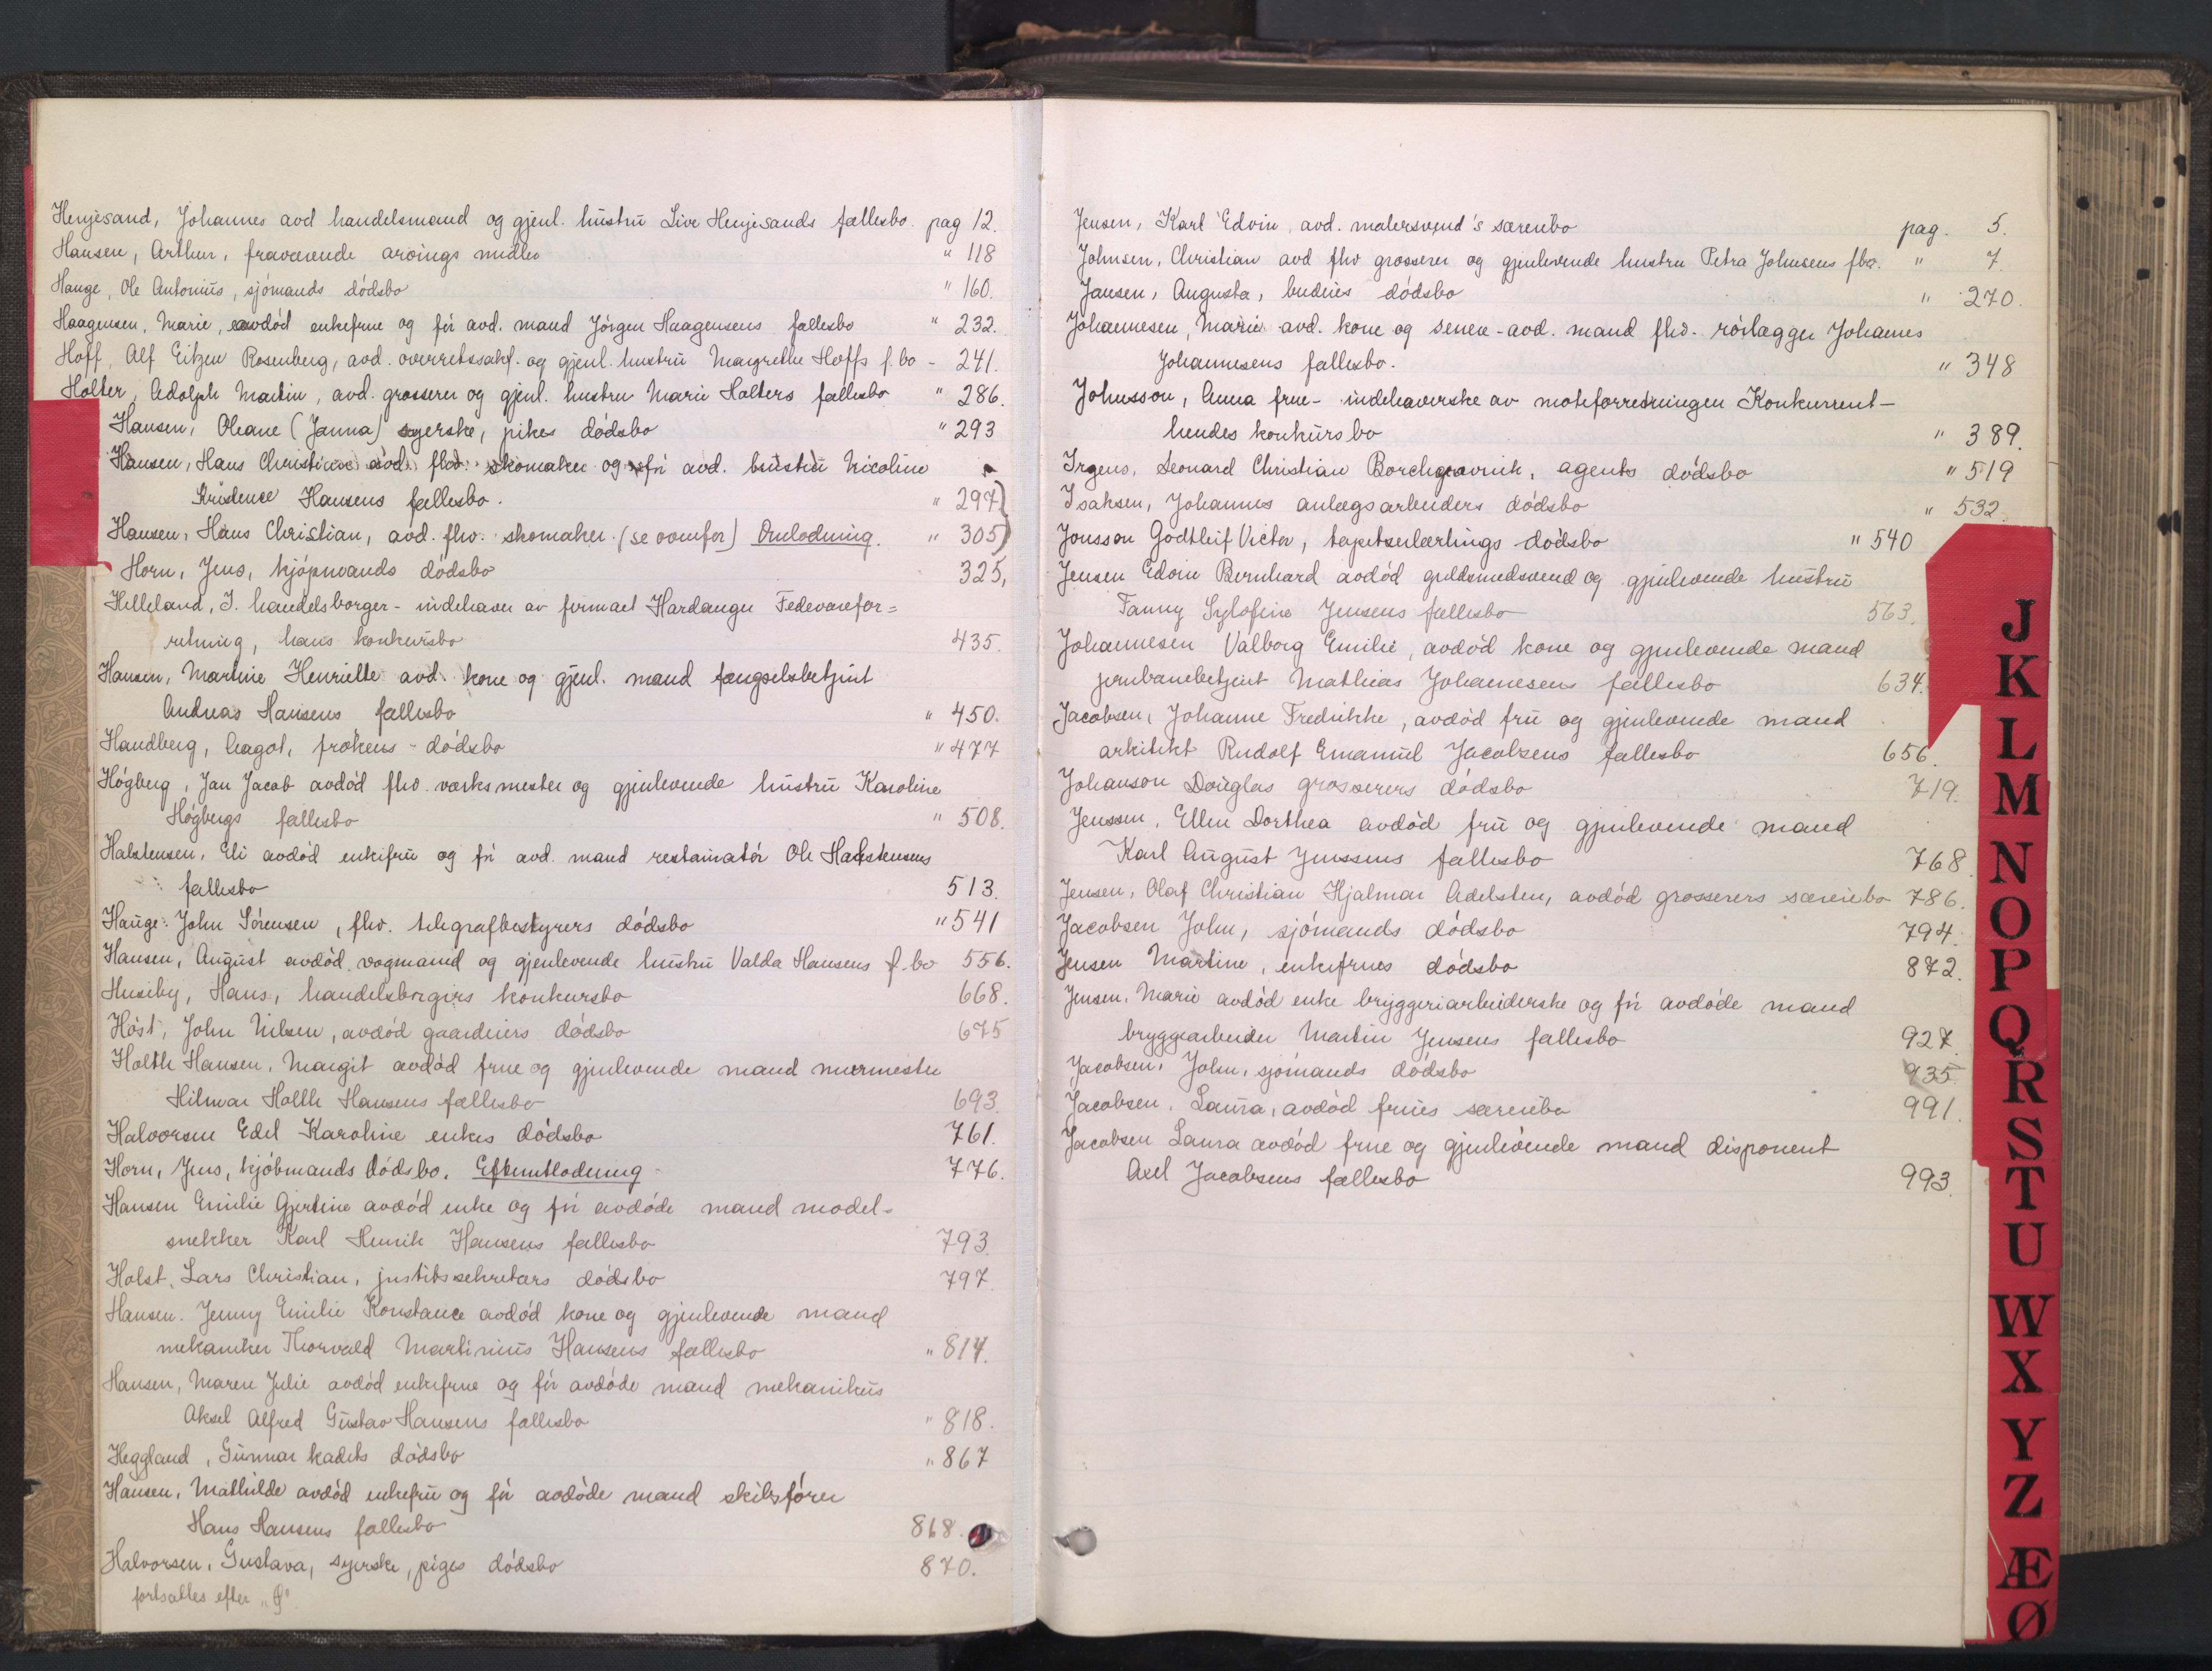 Henjesand, Johannes avd handelsmand og gjenl. hustru Live Henjesands fællesbo. pag 12.
Hansen, Arthur, fraværende arvings midler " 118
Hauge, Ole Antonius, sjömands dödsbo " 160.
Haagensen, Marie, avdöd enkefrue og för avd. mand Jörgen Haagensens fællesbo " 232.
Hoff, Alf Eitzen Rosenberg, avd. overretssakf. og gjenl. hustru Margrethe Hoffs f.bo - 241.
Holter, Adolph Martin, avd. grosserer og gjenl. hustru Marie Holters fællesbo " 286.
Hansen, Oleane (Janna) syerske, pikes dödsbo " 293
Hansen, Hans Christian avd. fhv. skomaker og för avd. hustru Nicoline
Hansens fællesbo. " 297)
Hansen, Hans Christian, avd. fhv. skomaker (se ovenfor) Omlodning. " 305)
Horn, Jens, kjöpmands dödsbo 325,
Helleland, I. handelsborger - indehaver av firmaet Hardanger Fedevarefor=
retning, hans konkursbo 435.
Hansen, Martine Henriette avd. kone og gjenl. mand fængselsbetjent
Andreas Hansens fællesbo " 450.
Handberg, Aagot, frökens - dödsbo " 477
Högberg, Jan Jacob avdöd fhv. verksmester og gjenlevende hustru Karoline
Högbergs fællesbo " 508.
Halstensen, Eli avdöd enkefru og för avd. mand restauratör Ole Halstensens
fællesbo 513.
Hauge John Sörensen, fhv. telegrafbestyrers dödsbo " 541
Hansen, August avdöd vogmand og gjenlevende hustru Valda Hansens f.bo 556.
Huseby, Hans, handelsborgers konkursbo 668.
Höst, John Nilsen, avdöd gaardeiers dödsbo 675
Holth Hansen, Margit avdöd frue og gjenlevende mand murmester
Hilmar Holth Hansens fællesbo 693.
Halvorsen Edel Karoline enkes dödsbo 761.
Horn, Jens, kjöbmands dödsbo. Efterutlodning - 776.
Hansen Emilie Gjertine avdöd enke og för avdöde mand model=
snekker Karl Henrik Hansens fællesbo 793.
Holst, Lars Christian, justitssekretærs dödsbo 797.
Hansen. Jenny Emilie Konstance avdöd kone og gjenlevende mand
mekaniker Thorvald Martinius Hansens fællesbo " 814.
Hansen, Maren Julie avdöd enkefrue og för avdöde mand mekanikus
Aksel Alfred Gustav Hansens fællesbo " 818.
Heggland, Gunnar kadets dödsbo " 867
Hansen, Mathilde avdöd enkefru og för avdöde mand skibsförer
Hans Hansens fællesbo 868.
Halvorsen, Gustava, syerske, piges dödsbo 870.
fortsættes efter "Q"
Jensen, Karl Edvin, avd. malersvend's særeiebo pag. 5.
Johnsen, Christian avd fhv grosserer og gjenlevende hustru Petra Johnsens fbo. " 7.
Jansen, Augusta, budeies dödsbo " 270.
Johannesen, Marie avd. kone og senere avd. mand fhv. rörlægger Johannes
Johannesens fællesbo. " 348
Johnsson, Anna frue - indehaverske av moteforretningen Konkurrent -
hendes konkursbo " 389.
Irgens, Leonard Christian Borchgrevink, agents dödsbo " 519
Isaksen, Johannes anlægsarbeiders dödsbo " 532.
Jonsson Godtleif Victor, tapetserlærlings dödsbo " 540
Jensen Edvin Bernhard avdöd guldsmedsvend og gjenlevende hustru
Fanny Sylofine Jensens fællesbo 563.
Johannesen Valborg Emilie, avdöd kone og gjenlevende mand
jernbanebetjent Mathias Johannesens fællesbo 634.
Jacobsen, Johanne Fredrikke, avdöd fru og gjenlevende mand
arkitekt Rudolf Emanuel Jacobsens fællesbo 656.
Johanson Douglas grosserers dödsbo 719.
Jenssen, Ellen Dorthea avdöd fru og gjenlevende mand
Karl August Jenssens fællesbo 768
Jensen, Olaf Christian Hjalmar Adelsten, avdöd grosserers særeiebo 786.
Jacobsen John, sjömands dödsbo 794.
Jensen Martine, enkefrues dödsbo 872.
Jensen, Marie avdöd enke bryggeriarbeiderske og för avdöde mand
bryggearbeider Martin Jensens fællesbo 927.
Jacobsen, John, sjömands dödsbo 935
Jacobsen, Laura, avdöd frues særeiebo 991.
Jacobsen Laura avdöd frue og gjenlevende mand disponent
Axel Jacobsens fællesbo 993.
J
K
L
M
N
O
P
Q
R
S
T
U
W
X
Y
Z
Æ
Ø